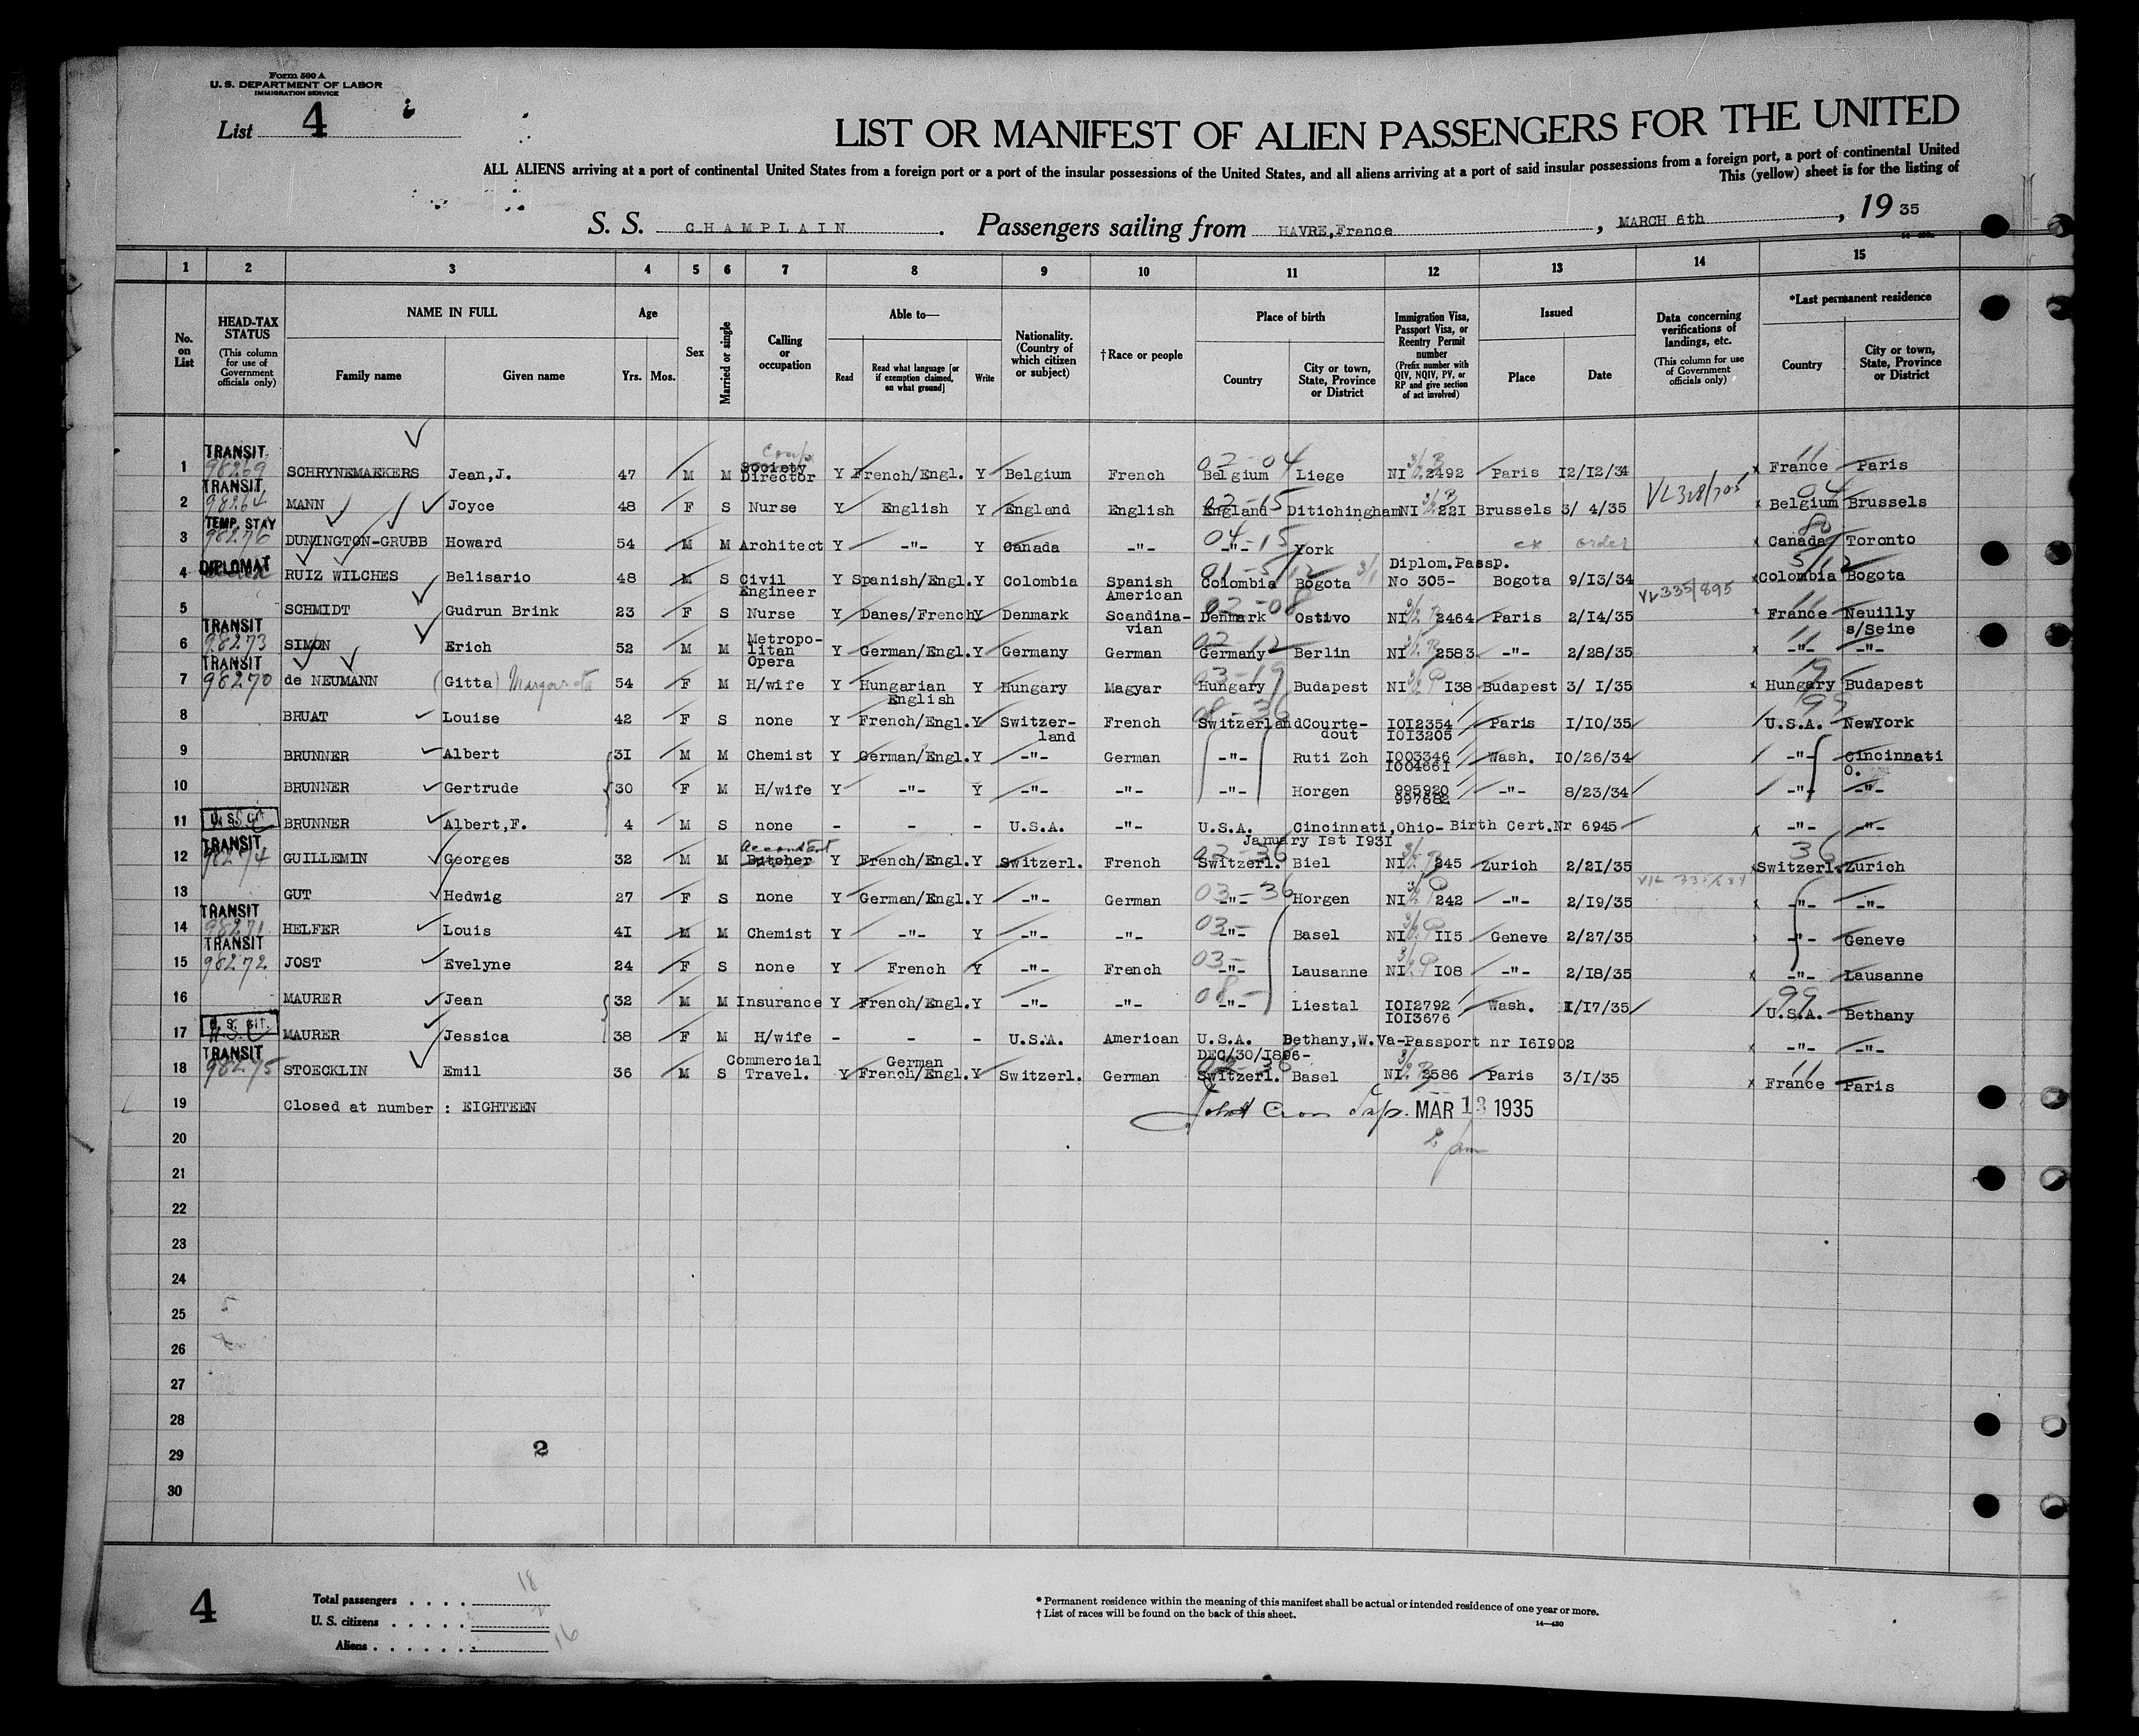 Form 500 A
U. S. DEPARTMENT OF LABOR
IMMIGRATION SERVICE
List 4
LIST OR MANIFEST OF ALIEN PASSENGERS FOR THE UNITED
ALL ALIENS arriving at a port of continental United States from a foreign port or a port of the insular possessions of the United States, and all aliens arriving at a port of said insular possessions from a foreign port, a port of continental United
This (yellow) sheet is for the listing of
S. S. CHAMPLAIN. Passengers sailing from HAVRE,France, MARCH 6th, 19 35
1 2 3 4 5 6 7 8 9 10 11 12 13 14 15
No. on List
HEAD-TAX STATUS (This column for use of Government officials only)
NAME IN FULL
Family name Given name
Age
Yrs. Mos.
Sex
Married or single
Calling or occupation
Able to—
Read Read what language [or if exemption claimed, on what ground] Write
Nationality. (Country of which citizen or subject)
†Race or people
Place of birth
Country City or town, State, Province or District
Immigration Visa, Passport Visa, or Reentry Permit number (Prefix number with QIV, NQIV, PV, or RP and give section of act involved)
Issued
Place Date
Data concerning verifications of landings, etc. (This column for use of Government officials only)
*Last permanent residence
Country City or town, State, Province or District
1 TRANSIT 98269 SCHRYNEMAEKERS Jean,J. 47 M M Comp Society Director Y French/Engl. Y Belgium French 02-04 Belgium Liege NI 2492 Paris I2/I2/34 x France Paris
2 TRANSIT 98264 MANN Joyce 48 F S Nurse Y English Y England English 02-15 England Ditichingham NI 22I Brussels 3/ 4/35 VL328/705 x Belgium Brussels
3 TEMP. STAY 98276 DUNINGTON-GRUBB Howard 54 M M Architect Y -"- Y Canada -"- 04-15 -"- York ex order x Canada Toronto
4 DIPLOMAT RUIZ WILCHES Belisario 48 M S Civil Engineer Y Spanish/Engl. Y Colombia Spanish American Colombia Bogota Diplom.Passp. No 305- Bogota 9/I3/34 x Colombia Bogota
5 SCHMIDT Gudrun Brink 23 F S Nurse Y Danes/French Y Denmark Scandina-vian 02-08 Denmark Ostivo NI 2464 Paris 2/I4/35 VL335/895 x France Neuilly s/Seine
6 TRANSIT 98273 SIMON Erich 52 M M Metropo-litan Opera Y German/Engl. Y Germany German 02-12 Germany Berlin NI 2583 -"- 2/28/35 x -"- -"-
7 TRANSIT 98270 de NEUMANN (Gitta) Margareta 54 F M H/wife Y Hungarian English Y Hungary Magyar 03-19 Hungary Budapest NI I38 Budapest 3/ I/35 x Hungary Budapest
8 BRUAT Louise 42 F S none Y French/Engl. Y Switzer-land French 08-36 Switzerland Courte-dout I0I2354 I0I3205 Paris I/I0/35 U.S.A. NewYork
9 BRUNNER Albert 3I M M Chemist Y German/Engl. Y -"- German -"- Ruti Zch I003346 I00466I Wash. I0/26/34 -"- Cincinnati O.
10 BRUNNER Gertrude 30 F M H/wife Y -"- Y -"- -"- -"- Horgen 995920 997682 -"- 8/23/34 -"- -"-
11 U. S. CIT. BRUNNER Albert,F. 4 M S none - - - U.S.A. -"- U.S.A. Cincinnati,Ohio- Birth Cert.Nr 6945 x -"- -"-
January Ist I93I
12 TRANSIT 98274 GUILLEMIN Georges 32 M M Accountant Butcher Y French/Engl. Y Switzerl. French 02-36 Switzerl. Biel NI 245 Zurich 2/2I/35 x Switzerl. Zurich
13 GUT Hedwig 27 F S none Y German/Engl. Y -"- German 03-36 -"- Horgen NI 242 -"- 2/I9/35 x -"- -"-
14 TRANSIT 98271 HELFER Louis 4I M M Chemist Y -"- Y -"- -"- 03- -"- Basel NI II5 Geneve 2/27/35 -"- Geneve
15 TRANSIT 98272 JOST Evelyne 24 F S none Y French Y -"- French 03- -"- Lausanne NI I08 -"- 2/I8/35 x -"- Lausanne
16 MAURER Jean 32 M M Insurance Y French/Engl. Y -"- -"- 08- -"- Liestal I0I2792 I0I3676 Wash. I/I7/35 99 U.S.A. Bethany
17 U. S. CIT. MAURER Jessica 38 F M H/wife - - - U.S.A. American U.S.A. Bethany,W.Va-Passport nr I6I902 x -"- -"-
DEC/30/I896-
18 TRANSIT 98275 STOECKLIN Emil 36 M S Commercial Travel. Y German French/Engl. Y Switzerl. German Switzerl. Basel NI 2586 Paris 3/I/35 x France Paris
19 Closed at number : EIGHTEEN MAR 13 1935
20
21
22
23
24
25 5
26
27
28
29 2
30
4
Total passengers . . . . 18
U. S. citizens . . . . . 2
Aliens . . . . . . . 16
* Permanent residence within the meaning of this manifest shall be actual or intended residence of one year or more.
† List of races will be found on the back of this sheet.
14—430